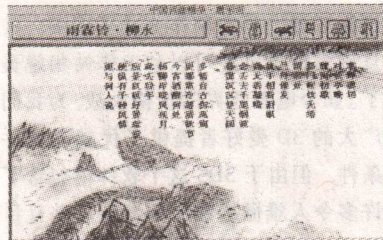 雨霖铃·柳永
寒蝉凄切
对长亭晚
骤雨初歇
都门帐饮无绪
留恋处
兰舟催发
执手相看泪眼
竟无语凝噎
念去去千里烟波
暮霭沉沉楚天阔
多情自古伤离别
更那堪冷落清秋节
今宵酒醒何处
杨柳岸晓风残月
此去经年
应是良辰好景虚设
便纵有千种风情
更与何人说